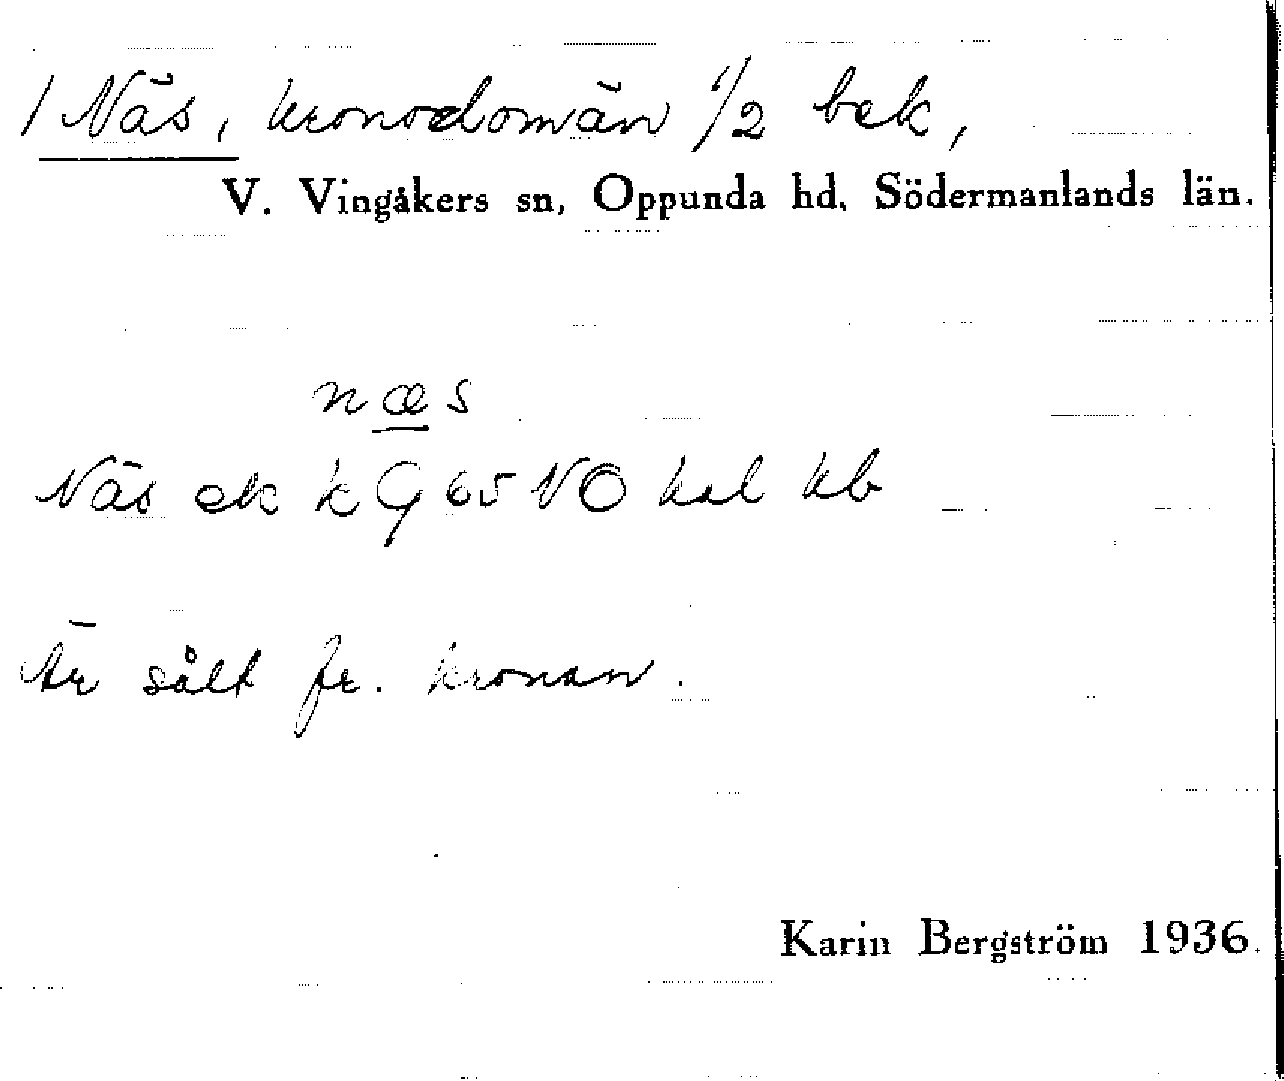 1 Näs, kronodomän 1/2 bek,
V. Vingåkers sn, Oppunda hd, Södermanlands län.
næs
Näs ek k G 65 NO hal kb
Är sålt fr. kronan.
Karin Bergström 1936.